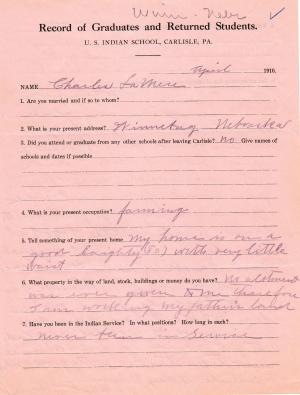 Winn - Nebr
Record of Graduates and Returned Students.
U. S. INDIAN SCHOOL, CARLISLE, PA.
April 1910.
NAME Charles La Mere
1. Are you married and if so to whom?
2. What is your present address? Winnebag Nebraska
3. Did you attend or graduate from any other schools after leaving Carlisle? No Give names of
schools and dates if possible
4. What is your present occupation? farming
5. Tell something of your present home My home is on a
good with very little
6. What property in the way of land, stock, buildings or money do you have? No alotment
was ever given to me therefore
I am working my father's land
7. Have you been in the Indian Service? In what positions? How long in each?
never been in Service